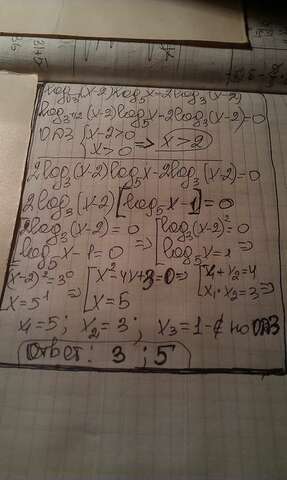 log√3(x-2)log5x=2log3(x-2)
log3^1/2(x-2)log5x-2log3(x-2)=0
ОДЗ {x-2>0 x>0 => x>2
2log3(x-2)log5x-2log3(x-2)=0
2log3(x-2)[log5x-1]=0
[2log3(x-2)=0 log5x-1=0 => [log3(x-2)²=0 log5x=1 =>
[(x-2)²=3⁰ x=5¹ => [x²-4x+3=0 x=5 => [x1+x2=4 x1·x2=3 =>
x1=5; x2=3; x3=1-∉ по ОДЗ
Ответ: 3 ; 5